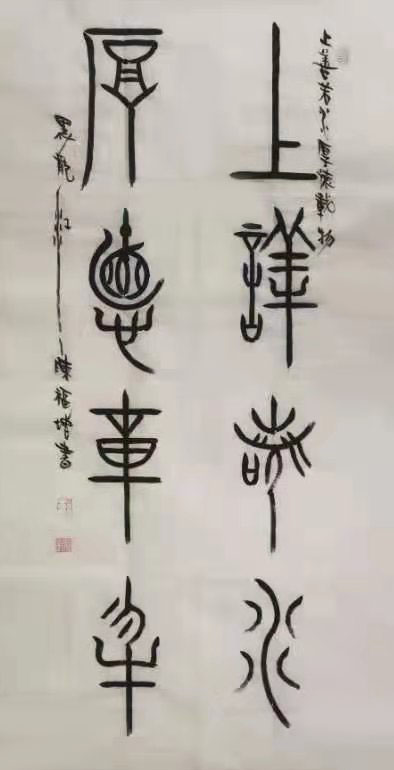 上善若水厚德載物
上善若水
厚德載物
黑龍江陳福增書